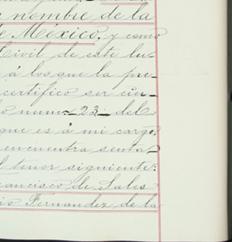 nombre de la
e México, y como
Civil de este lu-
á los que la pre-
certifico ser cier-
lo num=23= del
que es á mi cargo,
encuentra senta-
l tenor siguiente:
rancisco de Sales
io Fernandez de la